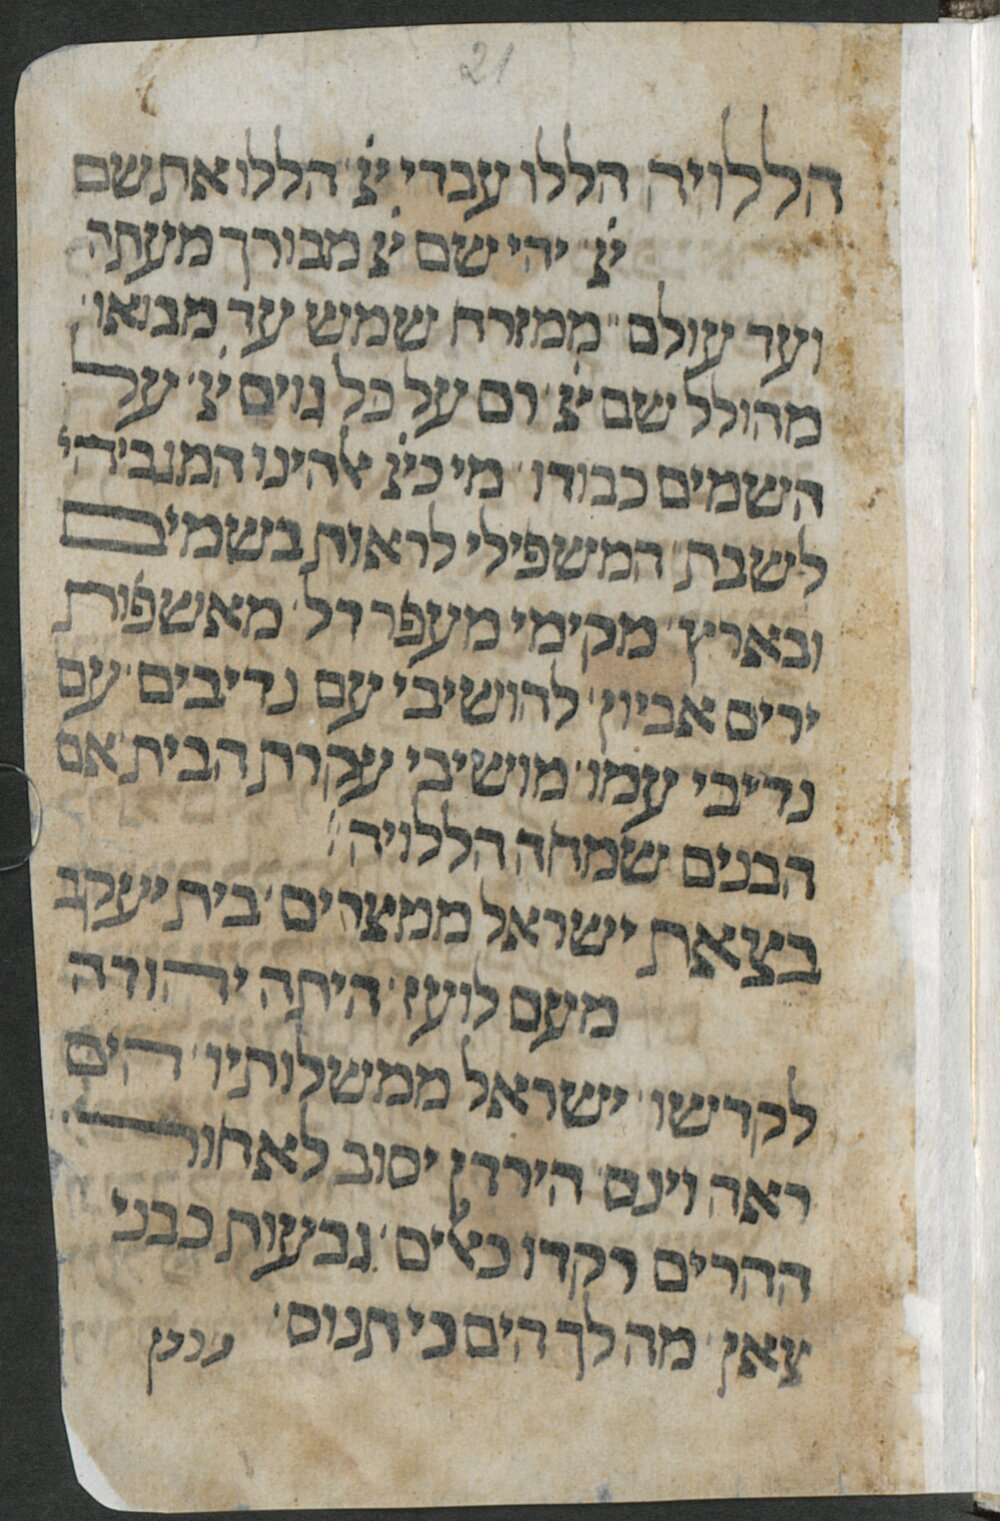 21
הללויה הללו עבדי יֹיֹ הללו את שם
יֹיֹ יהי שם יֹיֹ מבורך מעתה
ועד עולם ממזרח שמש עד מבואו
מהולל שם יֹיֹ רם על כל גוים יֹיֹ על
השמים כבודו מי כיֹיֹ אלהינו המגביהי
לשבת המשפילי לראות בשמים
ובארץ מקימי מעפר דל מאשפות
ירים אביון להושיבי עם נדיבים עם
נדיבי עמו מושיבי עקרת הבית אם
הבנים שמחה הללויה
בצאת ישראל ממצרים בית יעקב
מעם לועז היתה יהודה
לקדשו ישראל ממשלותיו הים
ראה וינס הירדן יסוב לאחור
ההרים רקדו כאלים גבעות כבני
צאן מה לך הים כי תנוס